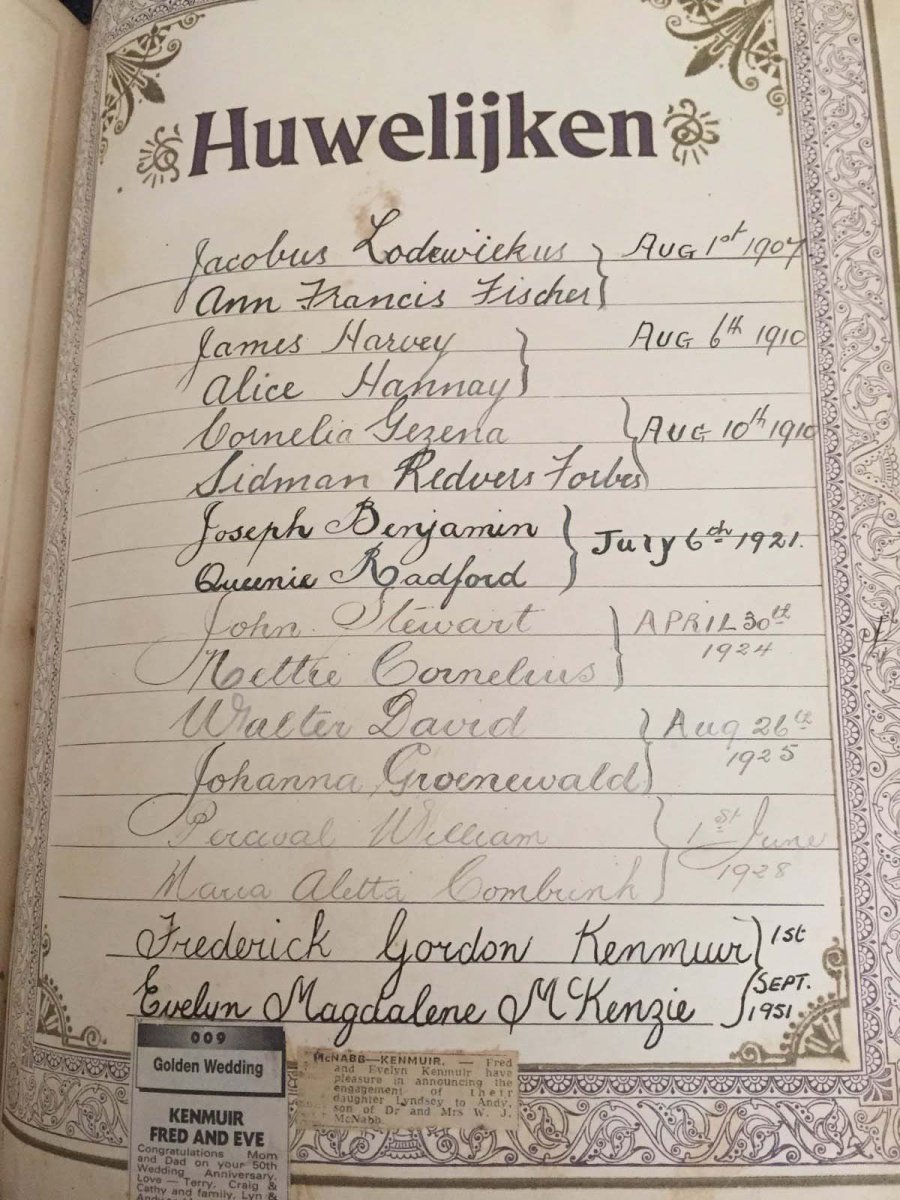 Huwelijken
Jacobus Lodewickus } Aug 1st 1907
Ann Francis Fischer
James Harvey } Aug 6th 1910
Alice Hannay
Cornelia Gezena } Aug 10th 1910
Sidman Redvers Forbes
Joseph Benjamin } July 6th 1921.
Queenie Radford
John Stewart } APRIL 30th
1924
Nettie Cornelius
Walter David } Aug 26th
1925
Johanna Groenewald
Percival William } 1st June
1928
Maria Aletta Combrink
Frederick Gordon Kenmuir } 1st
Evelyn Magdalene McKenzie SEPT.
1951
009
Golden Wedding
KENMUIR
FRED AND EVE
Congratulations Mom
and Dad on your 50th
Wedding Anniversary.
Love — Terry, Craig &
Cathy and family, Lyn &
McNABB—KENMUIR. — Fred
and Evelyn Kenmuir have
pleasure in announcing the
engagement of their
daughter Lyndsey to Andy,
son of Dr and Mrs W. J.
McNabb.